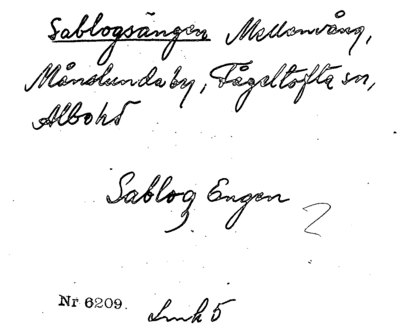 Sablogsängen Mellanvång,
Månslunda by, Fågeltofta sn,
Albo hd
Sablog Engen
Nr 6209. Lmk 5